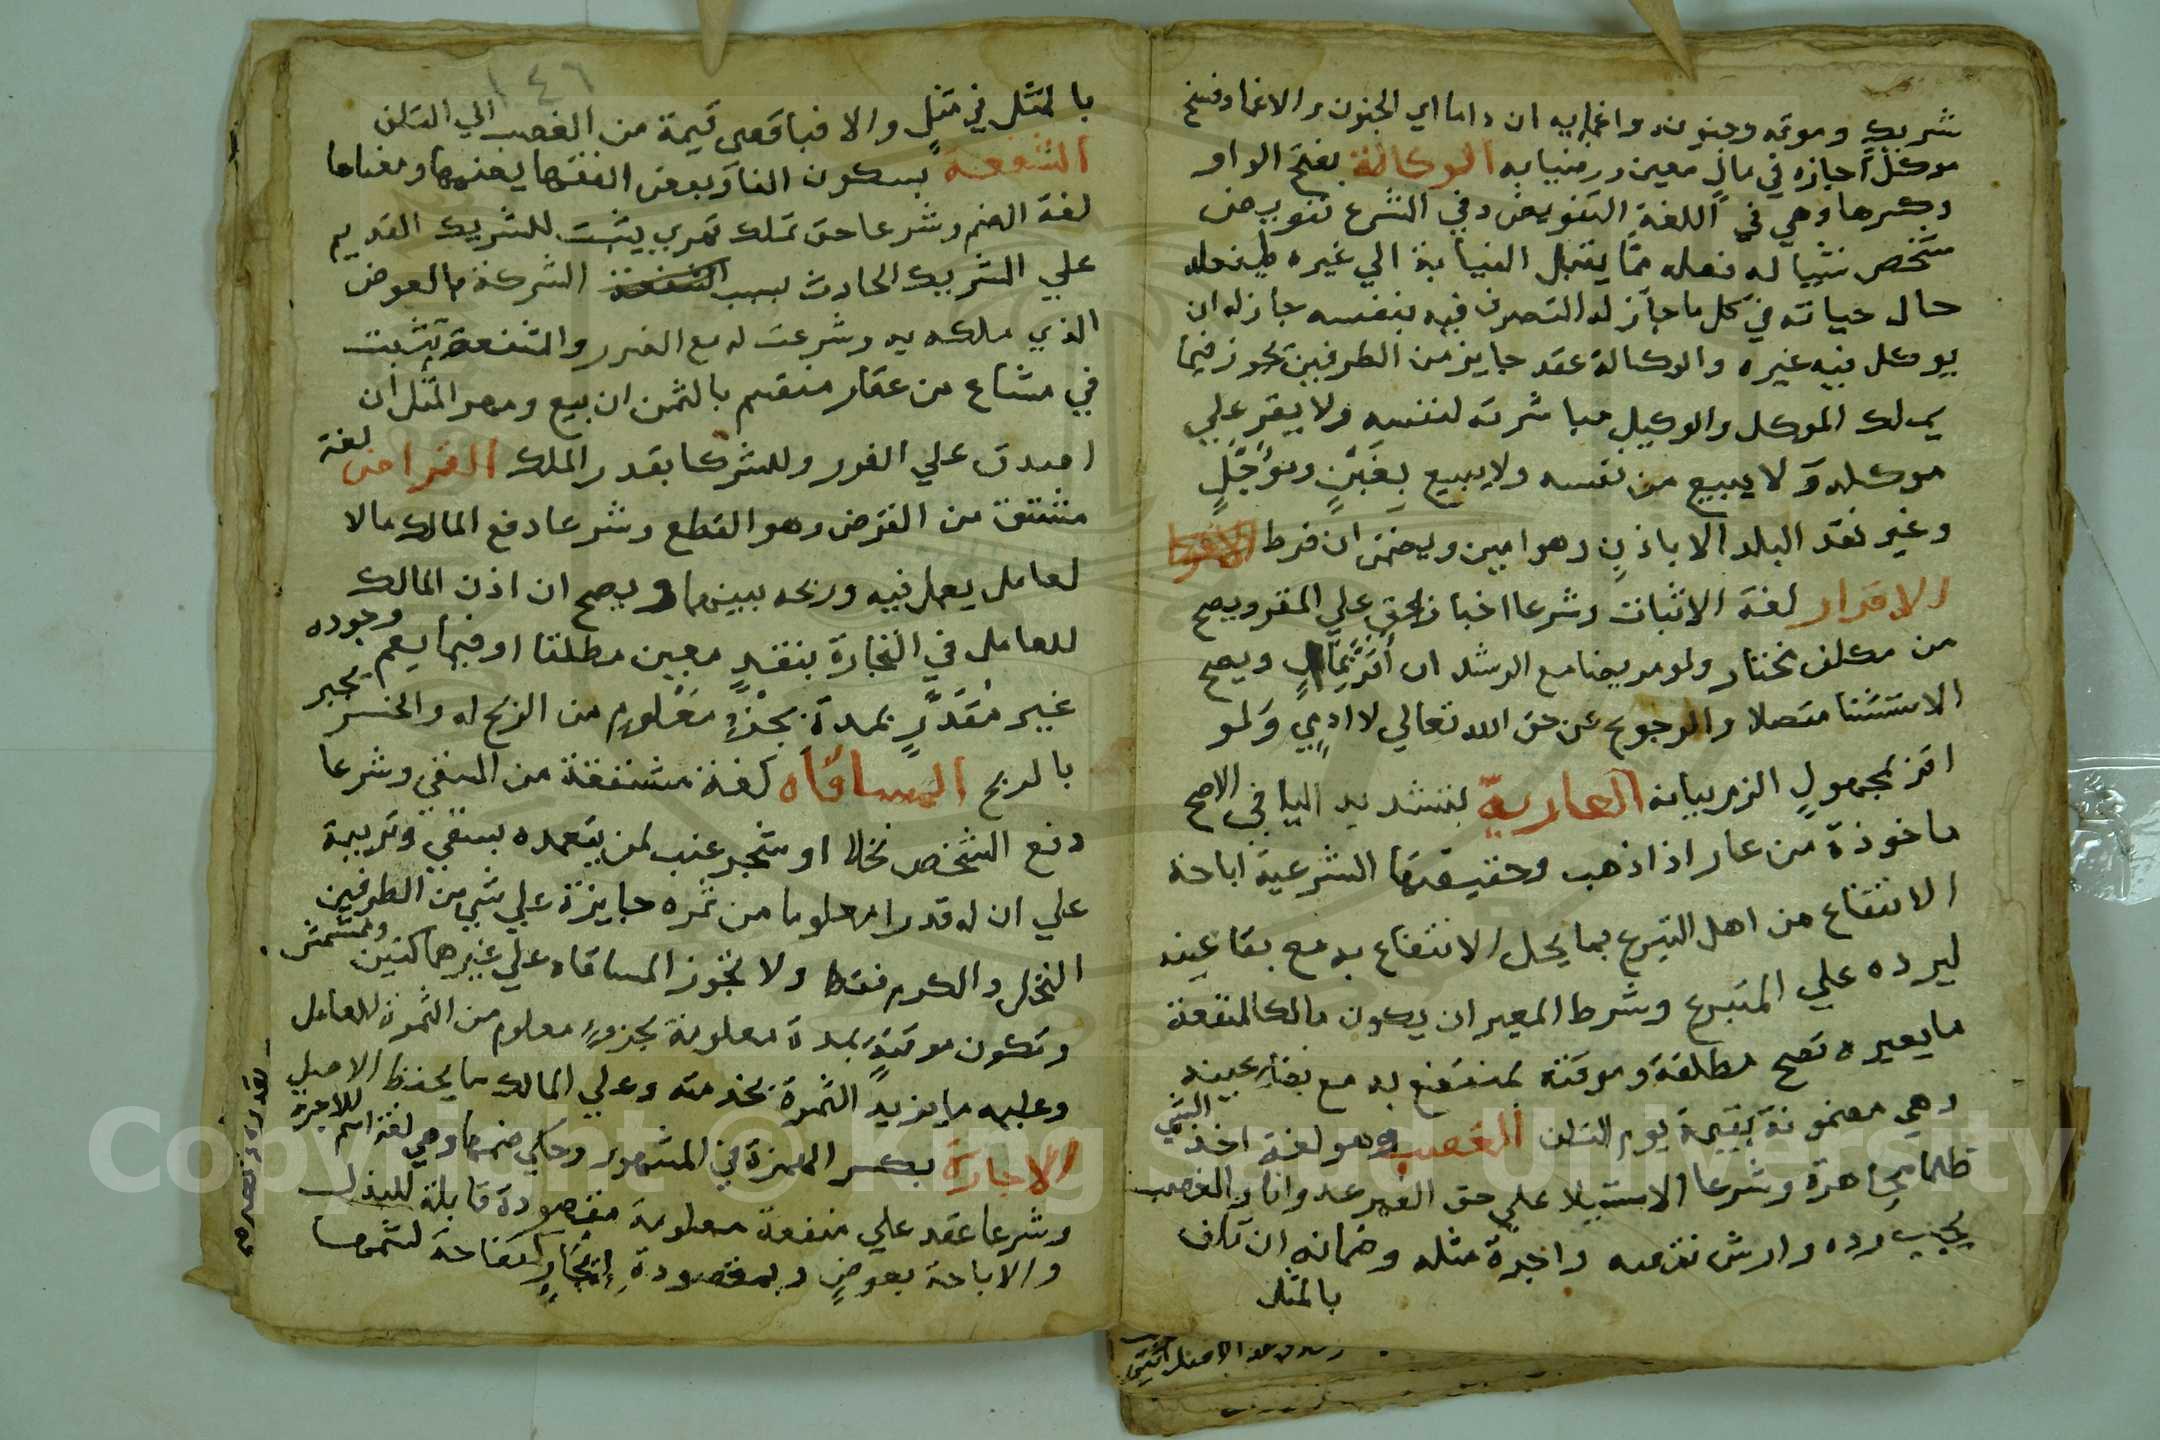 شريك وموته وجنونه واغمايه ان داما اي الجنون والاغما وفسخ
موكل اجازه في مال معين ورضيا به الوكالة بفتح الواو
وكسرها وهي في اللغة التفويض وفي الشرع تفويض
شخص شيا له فعله مما يقبل النيابة الي غيره ليفعله
حال حياته في كل ما جاز له التصرف فيه بنفسه جاز له ان
يوكل فيه غيره والوكالة عقد جايز من الطرفين تجوز فيما
يملك الموكل والوكيل مباشرته لنفسه ولا يقر علي
موكله ولا يبيع من نفسه ولا يبيع بغبن ومؤجل
وغير نقد البلد الا باذن وهو امين ويضمن ان فرط
الاقرار لغة الاثبات وشرعا اخبار بحق علي المقر ويصح
من مكلف مختار ولو مريضا مع الرشد ان اقر بمال ويصح
الاستثنا متصلا والرجوع عن حق الله تعالي لا ادمي ولو
اقر بمجهول الزم بيانه العارية بتشديد اليا في الاصح
ماخوذة من عار اذا ذهب وحقيقتها الشرعية اباحة
الانتفاع من اهل التبرع بما يحل الانتفاع به مع بقا عينه
ليرده علي المتبرع وشرط المعير ان يكون مالكا لمنفعة
ما يعيره تصح مطلقة وموقتة بمنتفع به مع بقا عينه
وهي مضمونة بقيمة يوم التلف الغصب وهو لغة اخذ الشي
ظلما مجاهرة وشرعا الاستيلا علي حق الغير عدوانا والغصب
يجب رده وارش نقصه واجرة مثله وضمانه ان تلف
بالمثل
١٤٦
بالمثل في مثل والا فباقصي قيمة من الغصب الي التلف
الشفعة بسكون الفا وبعض الفقها يضمها ومعناها
لغة الضم وشرعا حق تملك قهري يثبت للشريك القديم
علي الشريك الحادث بسبب الشركة بالعوض
الذي ملكه به وشرعت له مع الضرر والشفعة تثبت
في مشاع من عقار منقسم بالثمن ان بيع ومهر المثل ان
اصدق علي الفور وللشركا بقدر الملك القراض لغة
مشتق من القرض وهو القطع وشرعا دفع المالك مالا
لعامل يعمل فيه وربحه بينهما ويصح ان اذن المالك
للعامل في التجارة بنقد معين مطلقا او فيما يعم وجوده
غير مقدر بمدة بجزء معلوم من الربح له والخسر يجبر
بالربح المساقاه لغة مشتقة من السقي وشرعا
دفع الشخص نخلا او شجر عنب لمن يتعهده بسقي وتربية
علي ان له قدرا معلوما من ثمره جايزة علي شي من الطرفين
النخل والكرم فقط ولا تجوز المساقاه علي غيرهما كتين ومشمش
وتكون موقتة بمدة معلومة بجزء معلوم من الثمرة للعامل
وعليه ما يزيد الثمرة بخدمته وعلي المالك ما يحفظ الاصل
الاجارة بكسر الهمزة في المشهور وحكي ضمها وهي لغة اسم للاجرة
وشرعا عقد علي منفعة معلومة مقصودة قابلة للبذل
والاباحة بعوض وبمقصودة كتفاحة لشمها